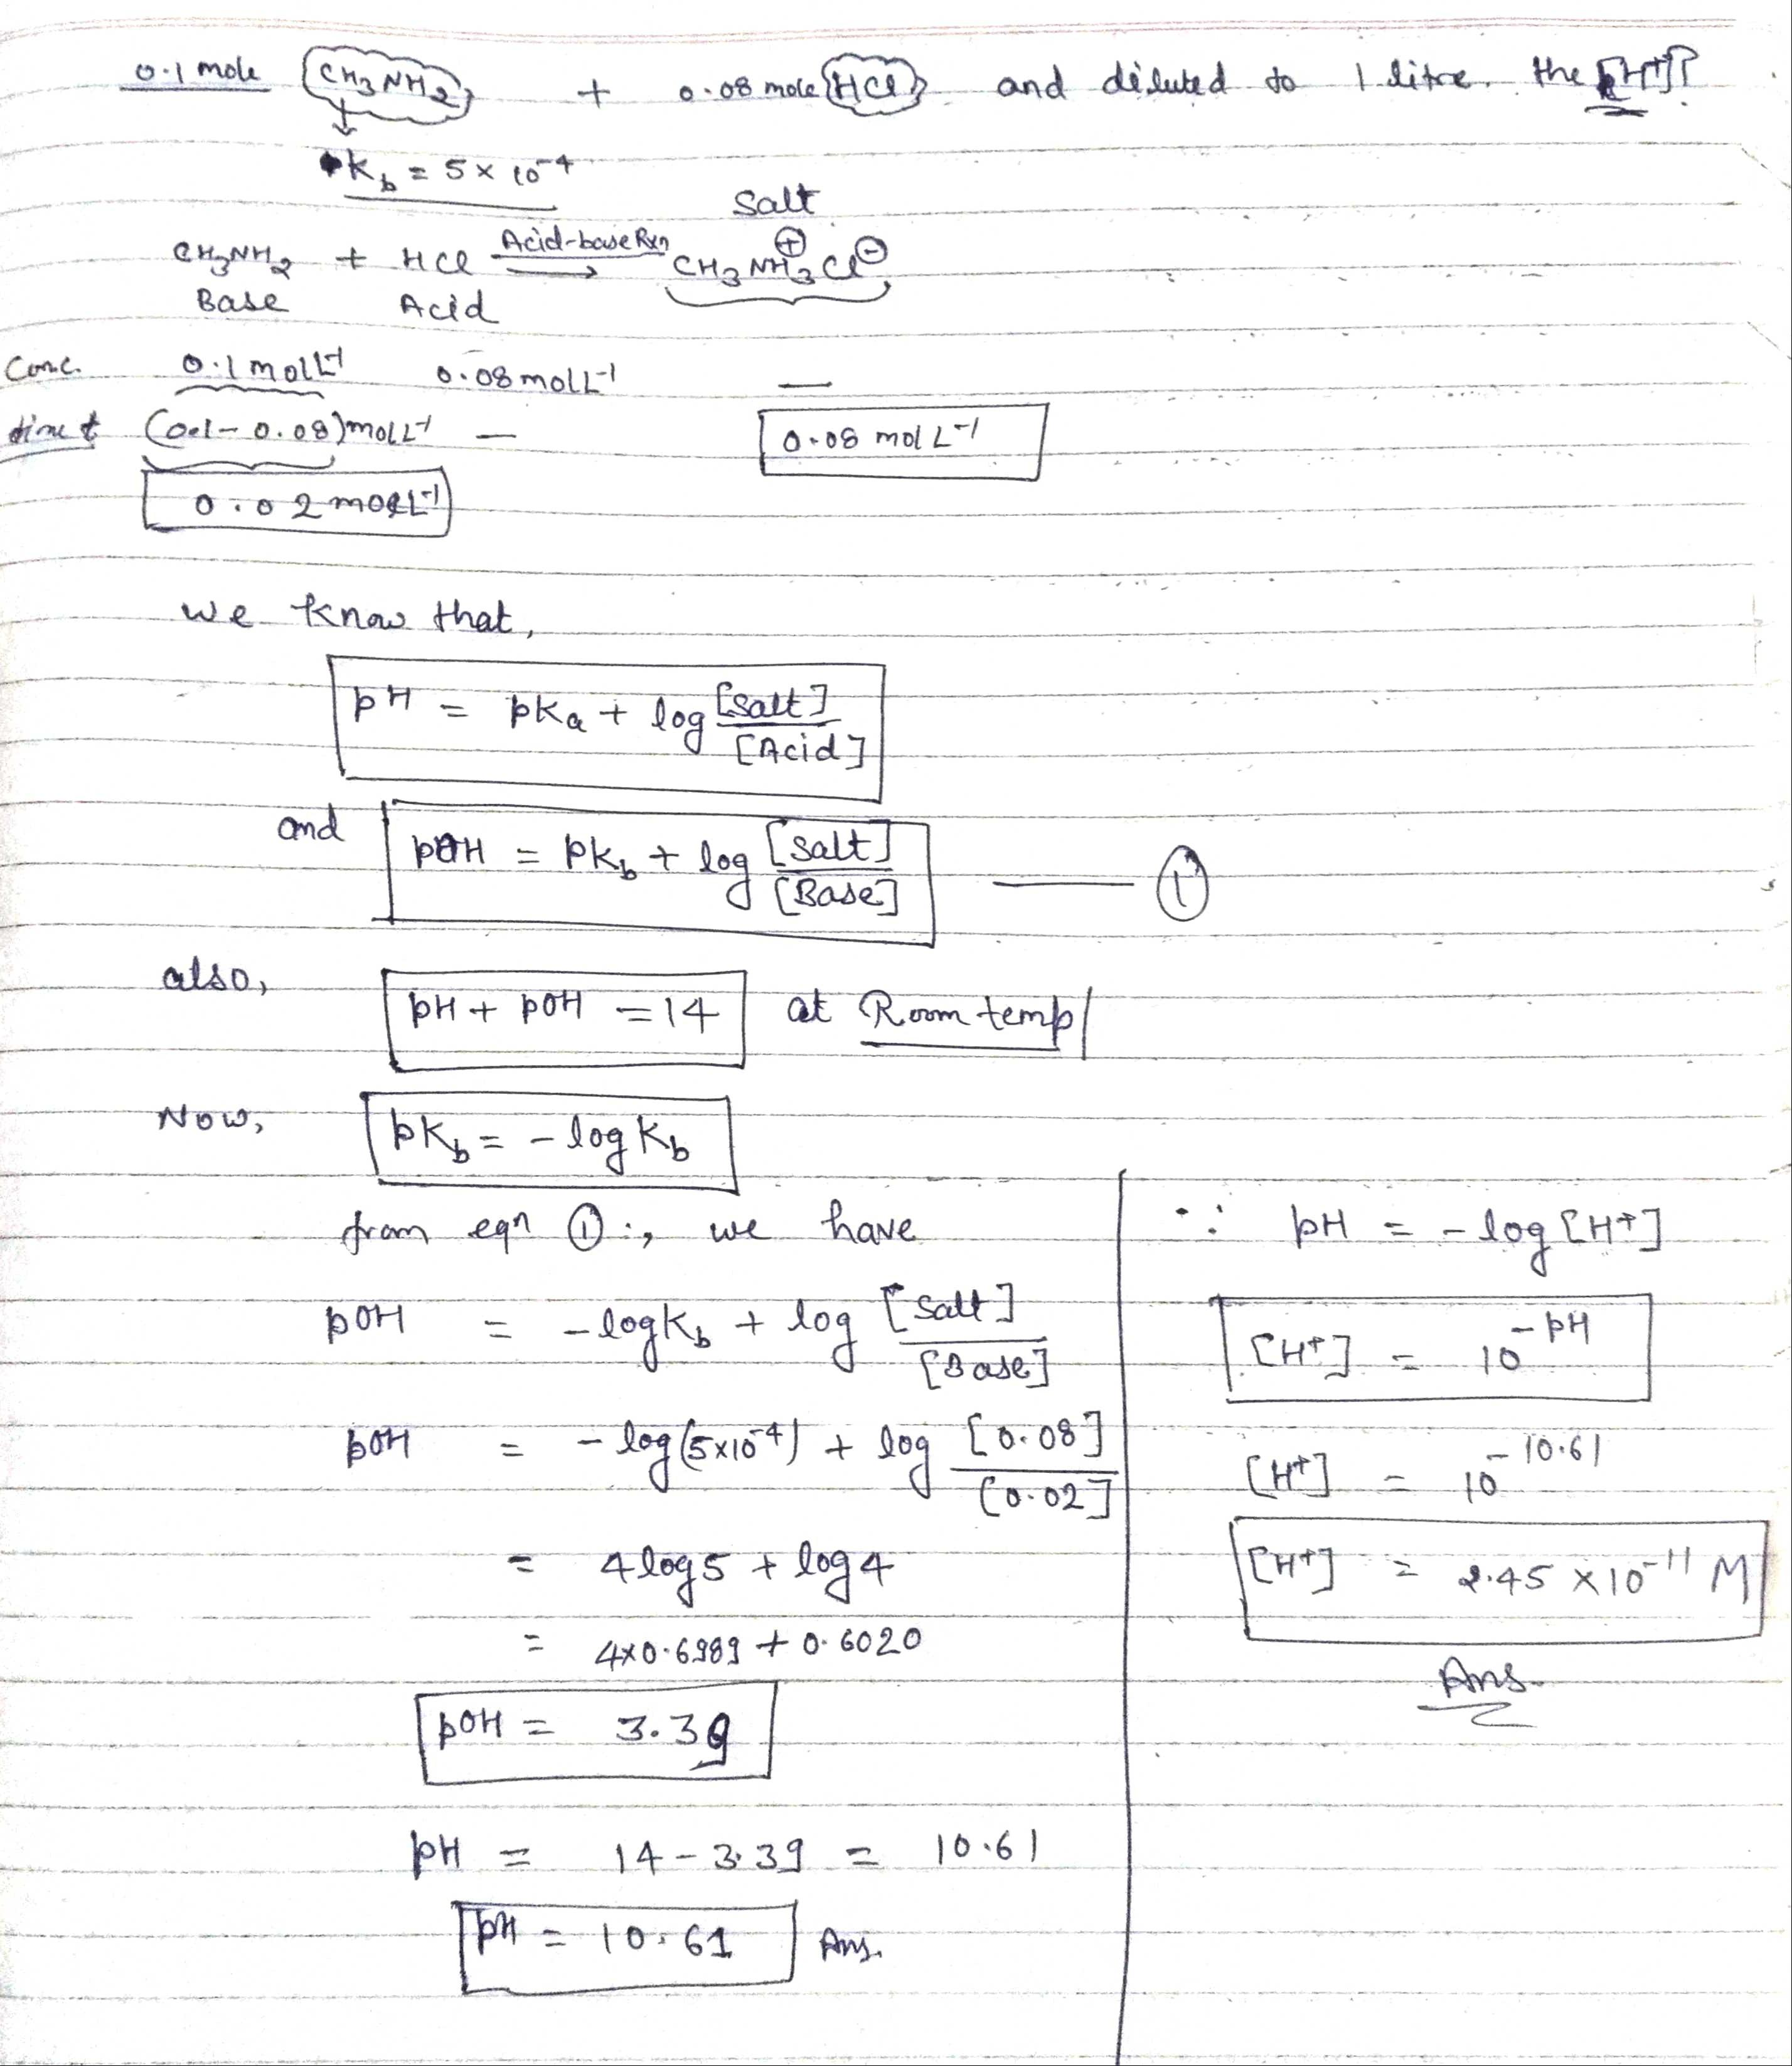 0.1 mole CH3NH2 + 0.08 mole HCl and diluted to 1 litre. the [H+]?
Kb = 5 × 10^-4
Salt
CH3NH2 + HCl Acid-base Rxn → CH3NH3⊕ Cl⊖
Base Acid
Conc. 0.1 mol L^-1 0.08 mol L^-1 —
time t (0.1 - 0.08) mol L^-1 — 0.08 mol L^-1
0.02 mol L^-1
we know that,
pH = pKa + log [Salt]/[Acid]
and pOH = pKb + log [Salt]/[Base] — ①
also, pH + pOH = 14 at Room temp
Now, pKb = - log Kb
from eqn ① :, we have
pOH = - log Kb + log [Salt]/[Base]
pOH = - log (5×10^-4) + log [0.08]/[0.02]
= 4 log 5 + log 4
= 4×0.6989 + 0.6020
pOH = 3.39
pH = 14 - 3.39 = 10.61
pH = 10.61 Ans.
∵ pH = - log [H+]
[H+] = 10^-pH
[H+] = 10^-10.61
[H+] = 2.45 × 10^-11 M
Ans.